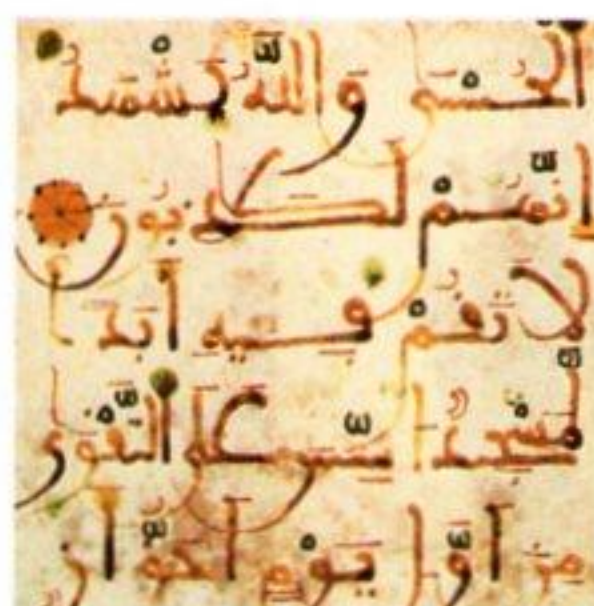 الْحُسْنَى وَاللَّهُ يَشْهَدُ
إِنَّهُمْ لَكَٰذِبُونَ
لَا تَقُمْ فِيهِ أَبَدًا
لَّمَسْجِدٌ أُسِّسَ عَلَى التَّقْوَى
مِنْ أَوَّلِ يَوْمٍ أَحَقُّ أَن